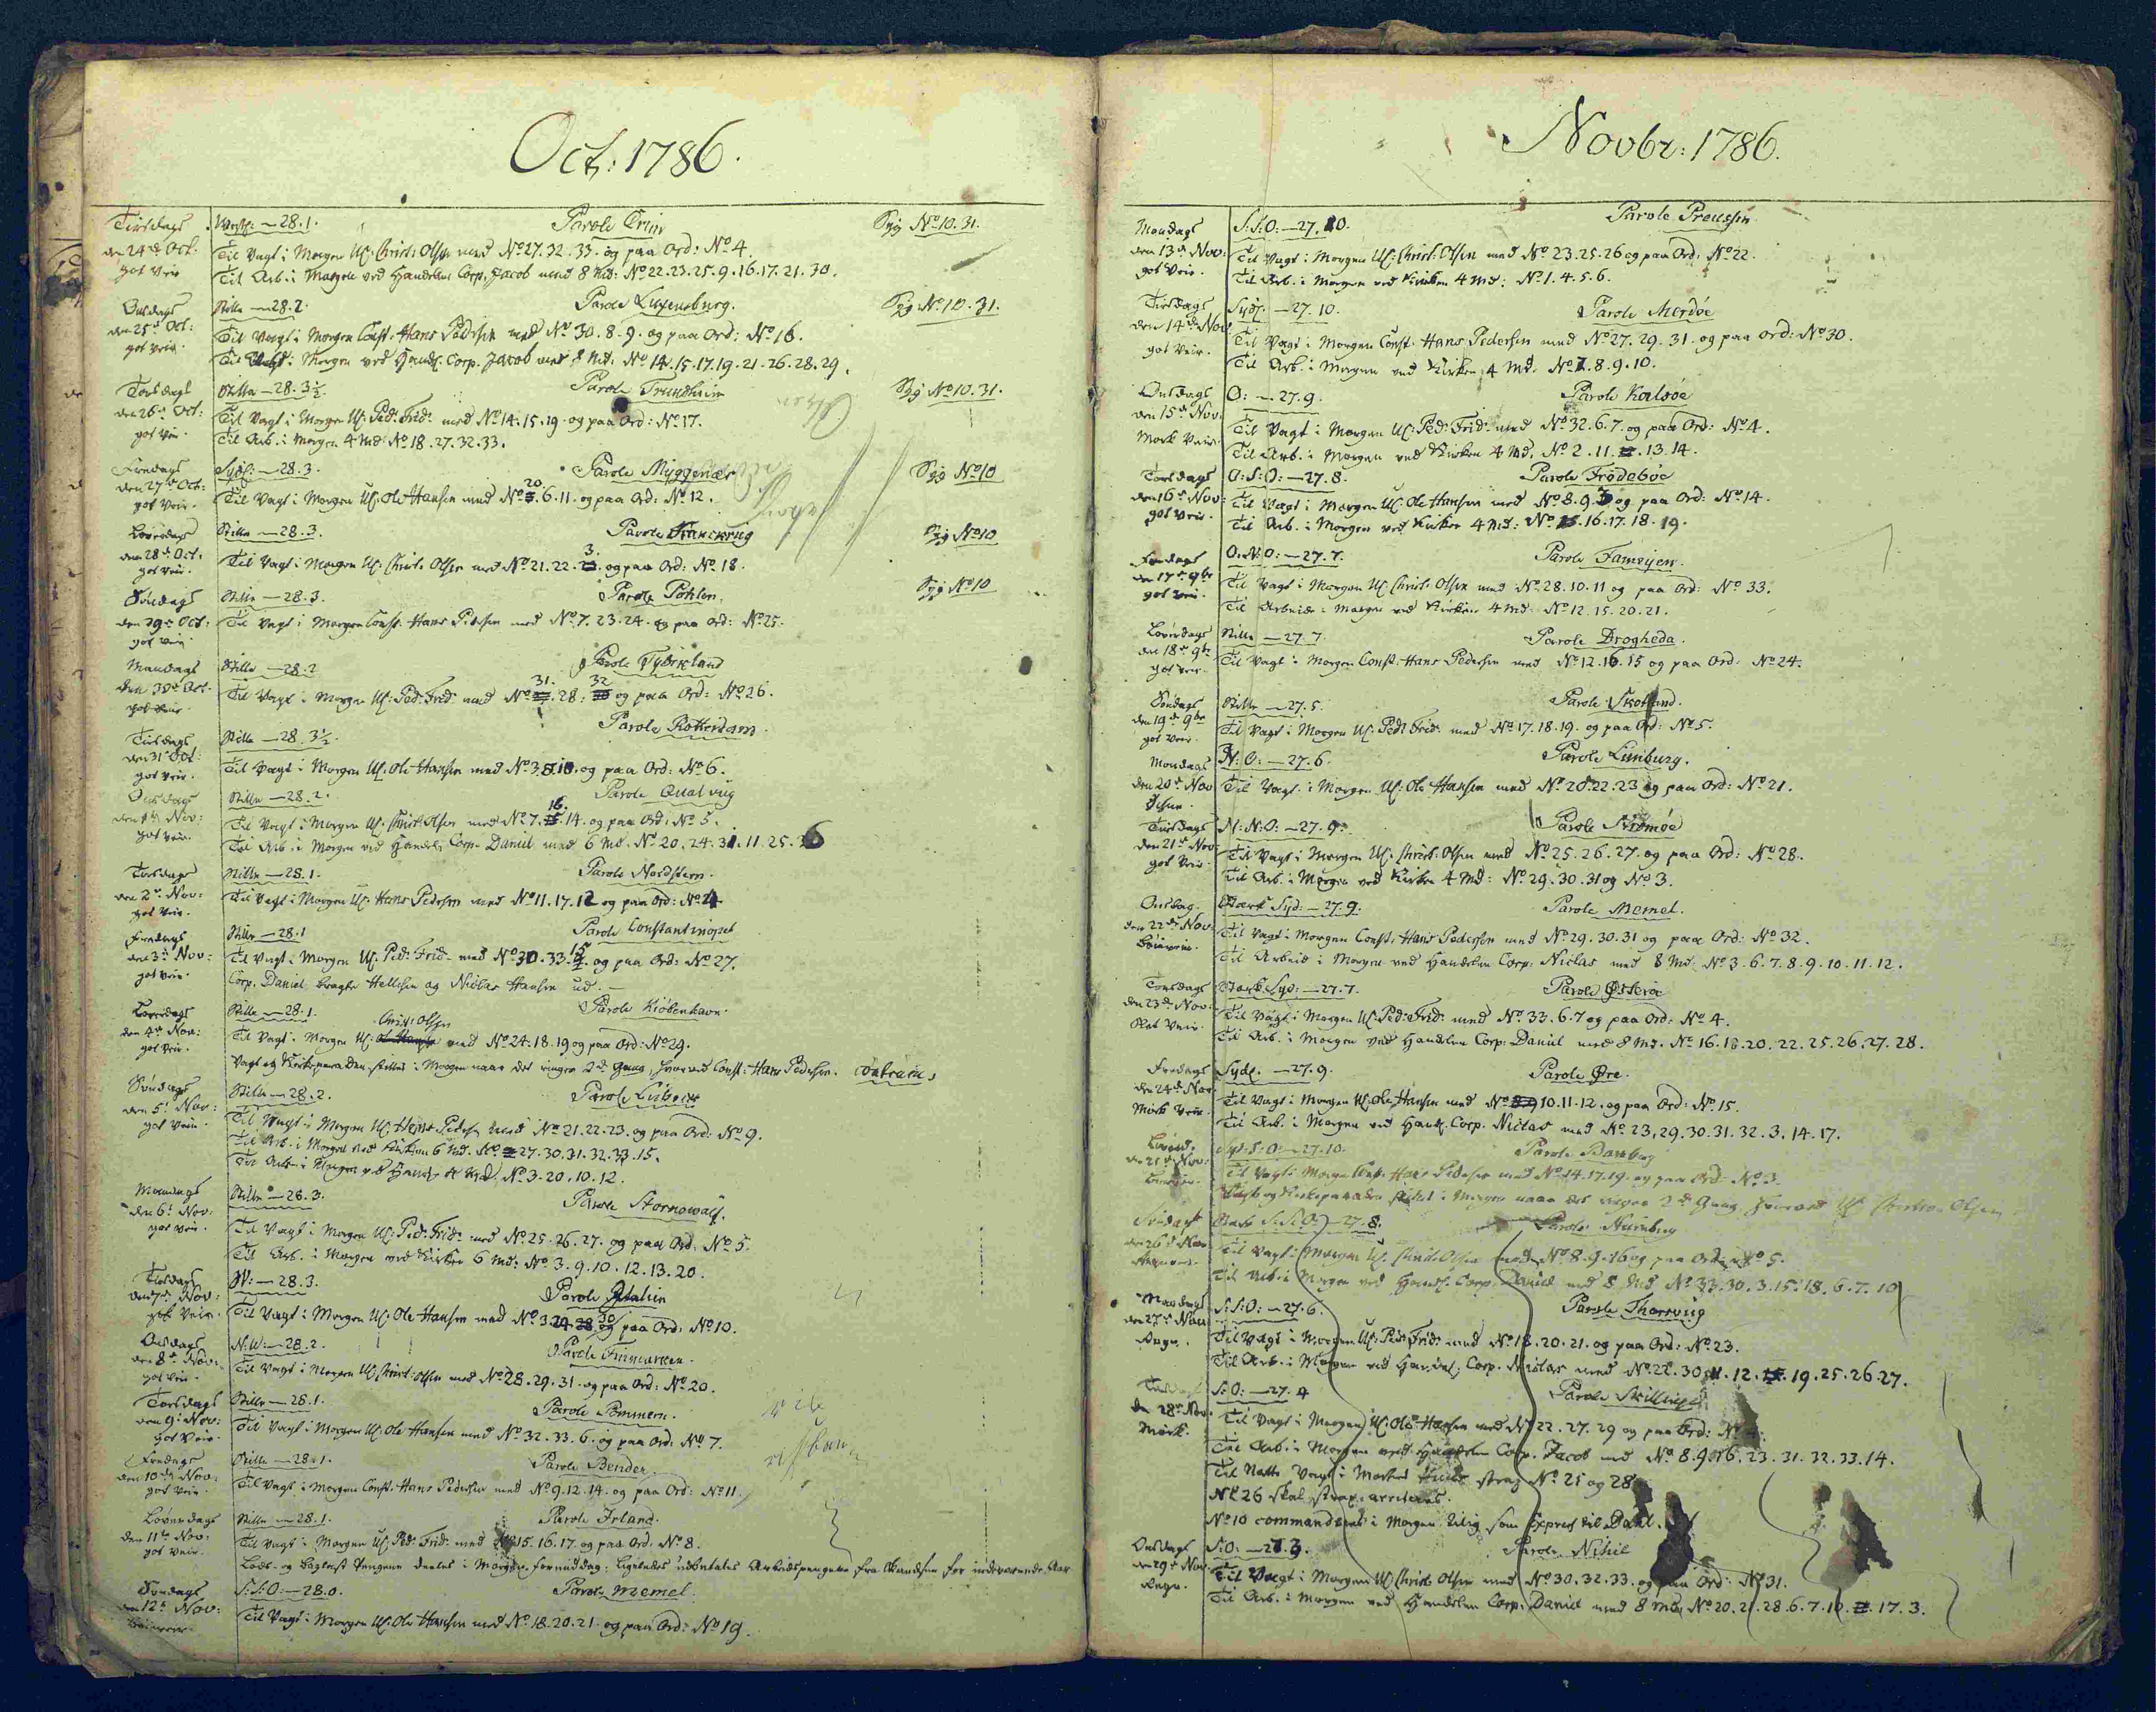 Oct: 1786.
Tirsdags
den 24de Oct:
got Veir
Westl: — 28.1.
Parole Trim
Syg No 10. 31.
Til Vagt i Morgen UC: Christ: Olsen med No 27. 32. 33. og paa Ord: No 4.
Til Arb. i Morgen ved Handelen Corp. Jacob med 8 Md: No 22. 23. 25. 9. 16. 17. 21. 30.
Onsdags
den 25de Oct:
got Veir.
Stille — 28.2.
Parole Luxenburg.
Syg No 10. 31.
Til Vagt i Morgen Const. Hans Pedersen med No 30. 8. 9. og paa Ord: No 16.
Til Arb: i Morgen ved Handl. Corp. Jacob med 8 Md. No 14. 15. 17. 19. 21. 26. 28. 29.
Torsdags
den 26de Oct:
got Veir.
Stille — 28. 3½.
Parole Trundheim
Syg No 10. 31.
Til Vagt i Morgen UC: Ped: Frid: med No 14. 15. 19. og paa Ord: No 17.
Til Arb. i Morgen 4 Md: No 18. 27. 32. 33.
Fredags
den 27de Oct:
got Veir.
Sydl: — 28.3.
Parole Myggenæs
Syg No 10
Til Vagt i Morgen UC: Ole Hansen med No 20. 6. 11. og paa Ord: No 12.
Løverdags
den 28de Oct.
got Veir.
Stille — 28.3.
Parole
Syg No 10
Til Vagt i Morgen UC: Christ: Olsen med No 21. 22. 3. og paa Ord: No 18.
Søndags
den 29de Oct:
got Veir.
Stille — 28.3.
Parole Pohlen.
Syg No 10
Til Vagt i Morgen Const. Hans Pedersen med No 7. 23. 24. og paa Ord: No 25.
Mandags
den 30de Oct.
got Veir.
Stille — 28.2
Parole Tydskland
Til Vagt i Morgen UC: Ped: Frid: med No 31. 28. 32 og paa Ord: No 26.
Tirsdags
den 31te Oct:
got Veir.
Stille — 28. 3½.
Parole Rotterdam.
Til Vagt i Morgen UC: Ole Hansen med No 3. 8. 10. og paa Ord: No 6.
Onsdags
den 1te Nov:
got Veir.
Stille — 28.2.
Parole Qualvig
Til Vagt i Morgen UC: Christ: Olsen med No 7. 16. 14. og paa Ord: No 5.
Til Arb. i Morgen ved Handel, Corp. Daniel med 6 Md. No 20. 24. 31. 11. 25. 26
Torsdags
den 2de Nov:
got Veir.
Stille — 28.1.
Parole Nordstern.
Til Vagt i Morgen UC: Hans Pedersen med No 11. 17. 12 og paa Ord: No 4
Fredags
den 3de Nov:
got Veir.
Stille — 28.1
Parole Constantinopel
Til Vagt i Morgen UC: Ped: Frid: med No 30. 33. 15. og paa Ord: No 27.
Corp. Daniel bragte Hellesen og Niclas Hansen ud. —
Løverdags
den 4de Nov:
got Veir.
Stille — 28.1.
Parole Kiøbenhavn.
Christ: Olsen
Til Vagt i Morgen UC: med No 24. 18. 19 og paa Ord: No 29.
Vagt og Kirkeparaden stilles i Morgen naar det ringer 2de Gang, hvorved Const: Hans Pedersen.
Søndags
den 5te Nov:
got Veir.
Stille — 28.2.
Parole Lübeck
Til Vagt i Morgen UC: Hans Peders. med No 21. 22. 23. og paa Ord: No 9.
Til Arb. i Morgen ved Kirken 6 Md. No 27. 30. 31. 32. 33. 15.
Til Arb. i Morgen ved Handl: 4 Md. No 3. 20. 10. 12.
Mandags
den 6te Nov:
got Veir.
Stille — 28.3.
Parole Stornoway.
Til Vagt i Morgen UC: Ped: Frid: med No 25. 26. 27. og paa Ord. No 5.
Til Arb. i Morgen ved Kirken 6 Md: No 3. 9. 10. 12. 13. 20.
Tirsdags
den 7de Nov:
got Veir.
W: — 28.3.
Parole Italien
Til Vagt i Morgen UC: Ole Hansen med No 3. 24. 30 og paa Ord: No 10.
Onsdags
den 8de Nov:
got Veir.
N:W: — 28.2.
Parole Finmarken.
Til Vagt i Morgen UC: Christ: Olsen med No 28. 29. 31. og paa Ord: No 20.
Torsdags
den 9de Nov:
got Veir.
Stille — 28.1.
Parole Pommern.
Til Vagt i Morgen UC: Ole Hansen med No 32. 33. 6. og paa Ord: No 7.
Fredags
den 10de Nov:
got Veir.
Stille — 28.1.
Parole Bender.
Til Vagt i Morgen Const. Hans Pedersen med No 9. 12. 14. og paa Ord: No 11.
Løverdags
den 11te Nov:
got Veir.
Stille — 28.1.
Parole Irland.
Til Vagt i Morgen UC: Ped: Frid: med No 15. 16. 17. og paa Ord: No 8.
Lods- og Baglønst Pengene deeles i Morgen formiddag: ligeledes udbetales Arbeidspengene fra Skandsen for indeværende Aar
Søndags
den 12te Nov:
S:S:O: — 28.0.
Parole Memel.
Til Vagt i Morgen UC: Ole Hansen med No 18. 20. 21. og paa Ord: No 19.
Novbr: 1786.
Mandags
den 13de Nov:
got Veir.
S:S:O: — 27. 10.
Parole Preussen
Til Vagt i Morgen UC: Christ: Olsen med No 23. 25. 26 og paa Ord: No 22.
Til Arb. i Morgen ved Kirken 4 Md: No 1. 4. 5. 6.
Tirsdags
den 14de Nov:
got Veir.
Sydl. — 27. 10.
Parole Merdøe
Til Vagt i Morgen Const. Hans Pedersen med No 27. 29. 31. og paa Ord: No 30.
Til Arb. i Morgen ved Kirken 4 Md. No 7. 8. 9. 10.
Onsdags
den 15de Nov:
Mørk Veir.
O: — 27. 9.
Parole Kalsøe
Til Vagt i Morgen UC: Ped: Frid: med No 32. 6. 7. og paa Ord: No 4.
Til Arb. i Morgen ved Kirken 4 Md. No 2. 11. 13. 14.
Torsdags
den 16de Nov:
got Veir.
O:S:O: — 27. 8.
Parole Frodebøe
Til Vagt i Morgen UC: Ole Hansen med No 8. 9. 3 og paa Ord: No 14.
Til Arb. i Morgen ved Kirken 4 Md: No 16. 17. 18. 19.
Fredags
den 17de 9br
got Veir.
O:N:O: — 27. 7.
Parole Famøyen.
Til Vagt i Morgen UC: Christ: Olsen med No 28. 10. 11 og paa Ord: No 33.
Til Arbeide i Morgen ved Kirken 4 Md: No 12. 15. 20. 21.
Løverdags
den 18de 9br
got Veir.
Stille — 27. 7.
Parole Drogheda.
Til Vagt i Morgen Const. Hans Pedersen med No 12. 16. 15 og paa Ord: No 24.
Søndags
den 19de 9br
got Veir.
Stille — 27. 5.
Parole Skotland.
Til Vagt i Morgen UC: Ped: Frid: med No 17. 18. 19. og paa Ord: No 5.
Mandags
den 20de Nov
N:O: — 27. 6.
Parole Limburg.
Til Vagt i Morgen UC: Ole Hansen med No 20. 22. 23 og paa Ord: No 21.
Tirsdags
den 21de Nov:
got Veir.
N:N:O: — 27. 9.
Parole Strømøe
Til Vagt i Morgen UC: Christ: Olsen med No 25. 26. 27. og paa Ord: No 28.
Til Arb. i Morgen ved Kirken 4 Md: No 29. 30. 31 og No 3.
Onsdag.
den 22de Nov:
Stærk Syd: — 27. 9.
Parole Memel.
Til Vagt i Morgen Const. Hans Pedersen med No 29. 30. 31 og paa Ord: No 32.
Til Arbeid i Morgen ved Handelen Corp. Niclas med 8 Md. No 3. 6. 7. 8. 9. 10. 11. 12.
Torsdags
den 23de Nov:
Slet Veir.
Stærk Syd: — 27. 7.
Parole Østerøe
Til Vagt i Morgen UC: Ped: Frid: med No 33. 6. 7 og paa Ord: No 4.
Til Arb. i Morgen ved Handelen Corp: Daniel med 8 Md. No 16. 18. 20. 22. 25. 26. 27. 28.
Fredags
den 24de Nov.
Mørk Veir.
Sydl. — 27. 9.
Parole Øre.
Til Vagt i Morgen UC: Ole Hansen med No 10. 11. 12. og paa Ord: No 15.
Til Arb. i Morgen ved Handl. Corp. Niclas med No 23. 29. 30. 31. 32. 3. 14. 17.
Løverd:
den 25de Nov:
Syd:S:O: — 27. 10.
Parole Bamberg
Til Vagt i Morgen Const. Hans Pedersen med No 14. 17. 19. og paa Ord: No 3.
Vagt og Kirkeparaden stilles i Morgen naar det ringer 2de Gang hvorved UC: Christian Olsen
Søndags
den 26de Nov
Stærk S:S:O: — 27. 8.
Parole Nurnberg
Til Vagt i Morgen UC: Christ: Olsen med No 8. 9. 16 og paa Ord: No 5.
Til Arb. i Morgen ved Handl. Corp. Daniel med 8 Md No 33. 30. 3. 15. 18. 6. 7. 10
Mandags
den 27de Nov
Regn.
S:S:O: — 27. 6.
Parole Thorsvig
Til Vagt i Morgen UC: Ped: Frid: med No 18. 20. 21. og paa Ord: No 23.
Til Arb. i Morgen ved Handel: Corp. Niclas med No 22. 30. 11. 12. 19. 25. 26. 27.
Tirsdags
den 28de Nov.
Mørk.
S:O: — 27. 4
Parole Skillinge
Til Vagt i Morgen UC: Ole Hansen med No 22. 27. 29 og paa Ord: No 4.
Til Arb. i Morgen ved Handelen Corp. Jacob med No 8. 9. 16. 23. 31. 32. 33. 14.
Til Natte Vagt i strax No 25 og 28
No 26 skal strax arresteres.
No 10 commanderes i Morgen tilig som Expres til
Onsdags
den 29de Nov
Regn.
S:O: — 27. 3.
Parole Nihil
Til Vagt i Morgen UC: Christ: Olsen med No 30. 32. 33. og paa Ord: No 31.
Til Arb. i Morgen ved Handelen Corp. Daniel med 8 Md. No 20. 21. 28. 6. 7. 10. 17. 3.